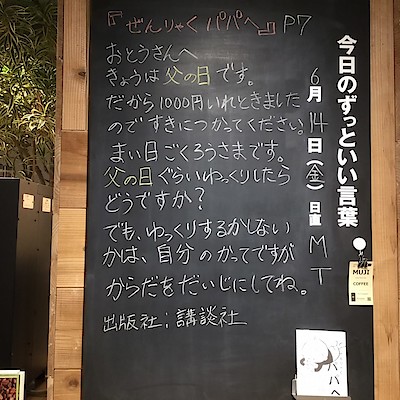 『ぜんりゃくパパへ』P7
おとうさんへ
きょうは父の日です。
だから1000円いれときました
のですきにつかってください。
まい日ごくろうさまです。
父の日ぐらいゆっくりしたら
どうですか？
でも、ゆっくりするかしない
かは、自分のかってですが
からだをだいじにしてね。
出版社；講談社
今日のずっといい言葉
6月14日（金）日直 M T
MUJI
COFFEE
パパへ